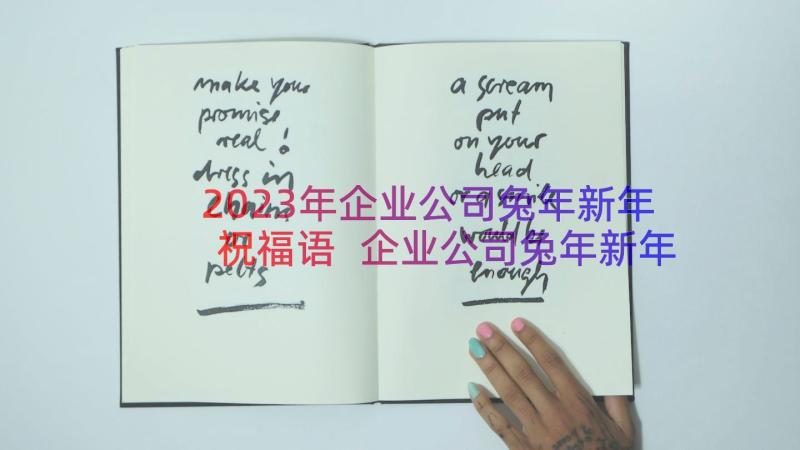 make your
promise
real!
dress in
chains
or
pelts
a scream
put
on your
head
or a smile
would be
enough
2023年企业公司兔年新年
祝福语 企业公司兔年新年